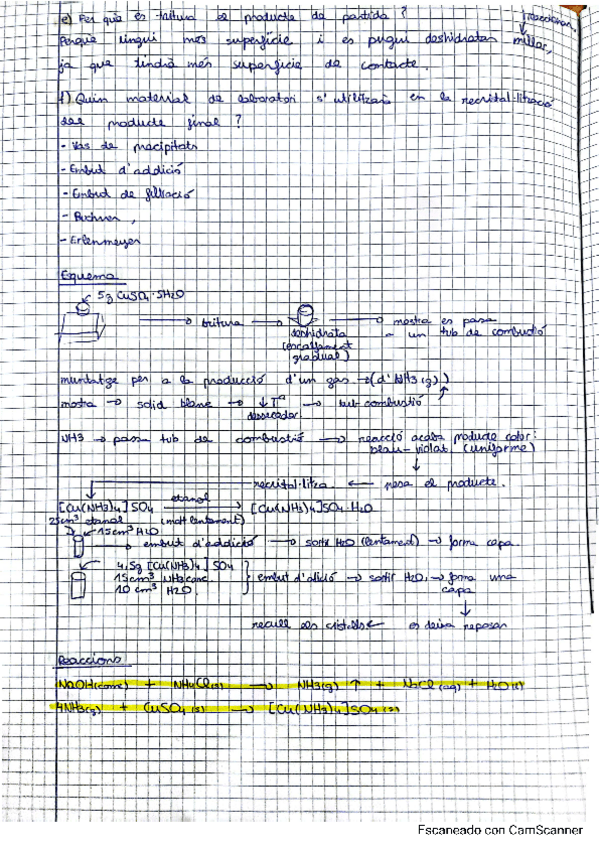 e) Per què es tritura el producte de partida? reaccionar
Perquè tingui més superfície i es pugui deshidratar millor,
ja que tindrà més superfície de contacte.
f) Quin material de laboratori s'utilitzarà en la recristal·lització
del producte final?
- Vas de precipitats
- Embut d'addició
- Embut de filtració
- Buchner,
- Erlenmeyer
Esquema
5g CuSO4·5H2O
→ tritura → deshidrata (escalfament gradual) → mostra es passa a un tub de combustió
muntatge per a la producció d'un gas → (d'NH3(g))
mostra → solid blanc → ↓Tª dessecador → tub combustió
NH3 → passa tub de combustió → reacció acaba producte color:
blau-violat (uniforme)
recristal·litza ← pesa el producte.
[Cu(NH3)4]SO4 etanol → [Cu(NH3)4]SO4·H2O
25cm³ etanol (molt lentament)
15cm³ H2O
→ embut d'addició → sortir H2O (lentament) → forma capa.
4,5g [Cu(NH3)4]SO4
15cm³ NH3 conc
10 cm³ H2O
} embut d'adició → sortir H2O → forma una capa
recull els cristalls ← es deixa reposar
Reaccions
NaOH(conc) + NH4Cl(s) → NH3(g) ↑ + NaCl(aq) + H2O(l)
4NH3(g) + CuSO4(s) → [Cu(NH3)4]SO4(s)
Escaneado con CamScanner